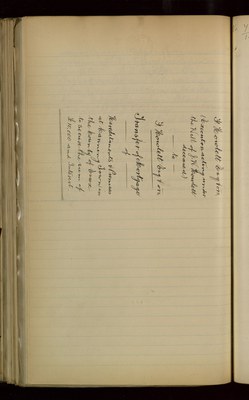 J. Howlett Esq & ors
(Executors acting under
the Will of J. H. Howlett
deceased)
to
J. Howlett Esq & ors
Transfer of Mortgage
of
Hereditaments & Premises
at
in
the County of
to secure the sum of
£10,000 and Interest